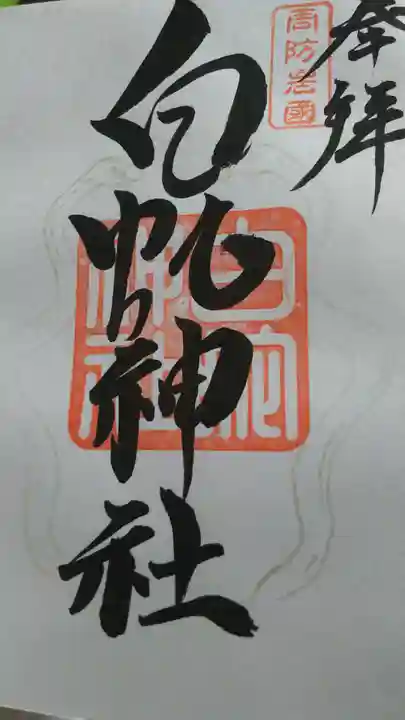 奉拝
周防岩國
白蛇神社
白蛇
神社